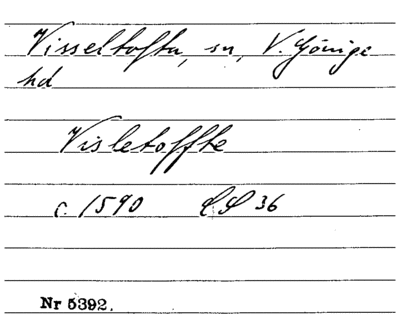 Visseltofta, sn, V. Göinge
hd
Visletoffte
c. 1590 LS 36
Nr 5392.